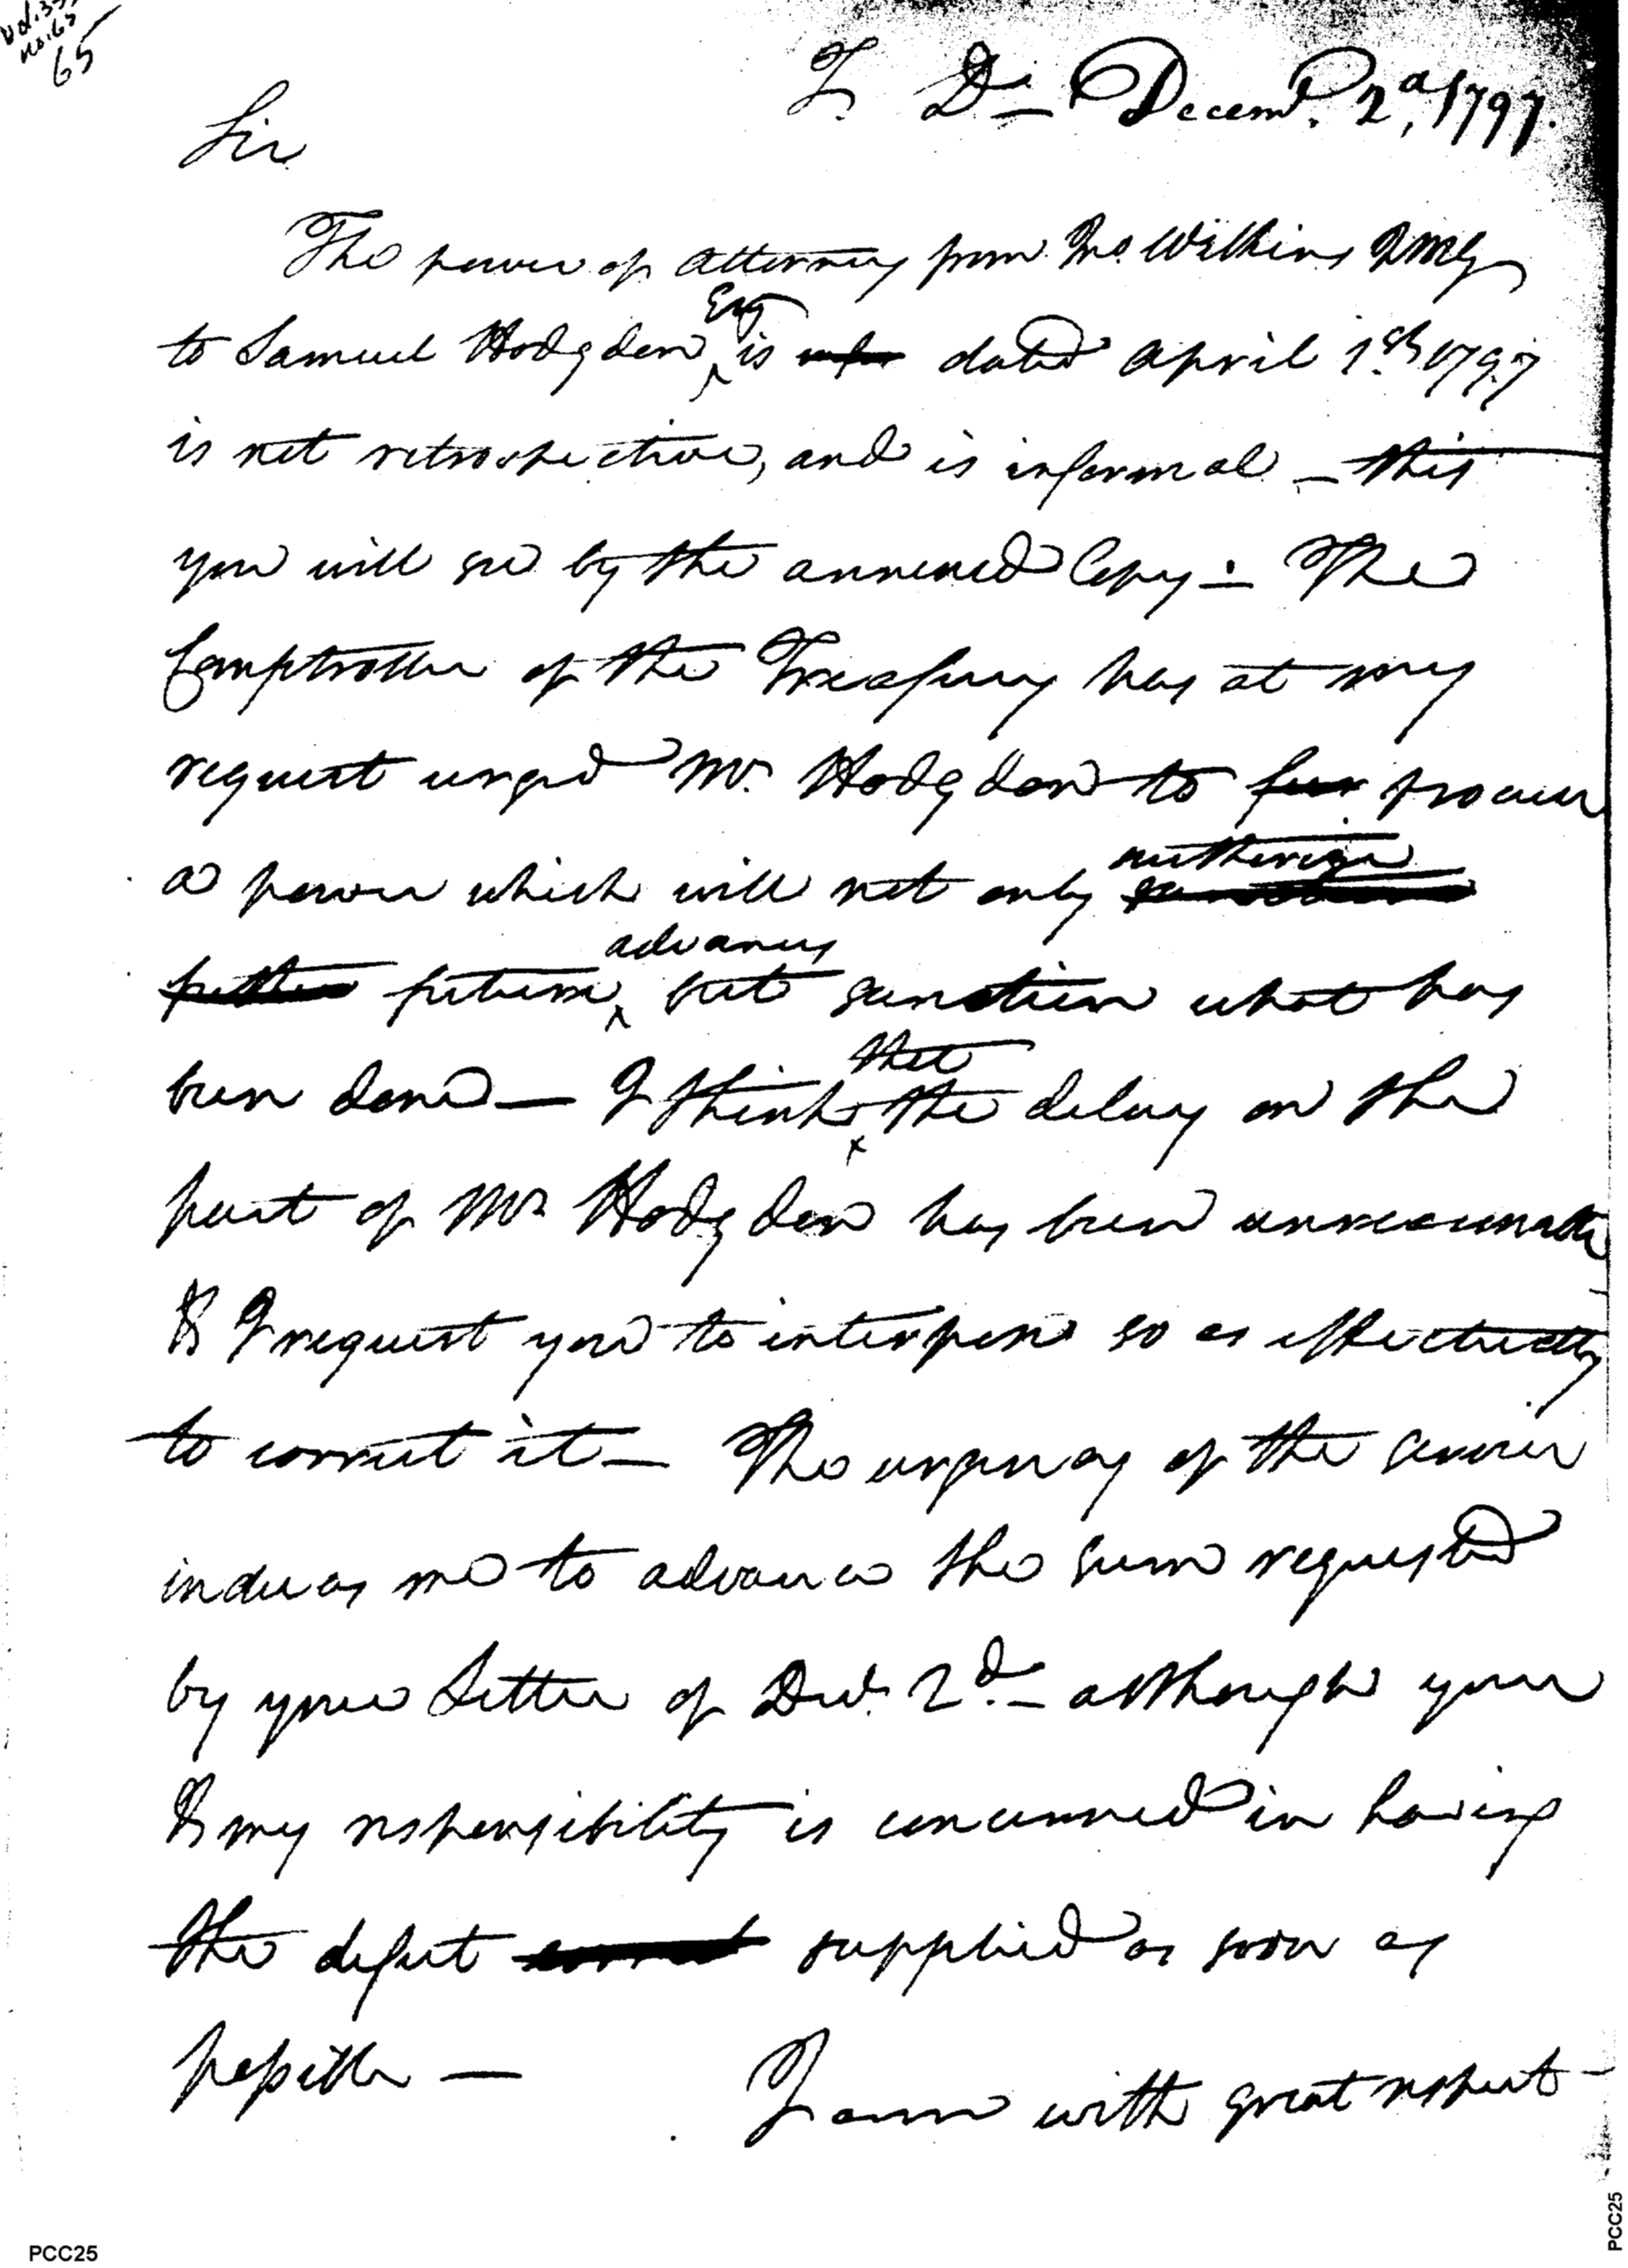 no. 65
65
T. D. Decemr. 2d, 1797.
Sir
The power of attorney from Jno Wilkins QMG
to Samuel Hodgdon Esq is dated April 1st 1797
is not retrospective, and is informal — this
you will see by the annexed Copy — The
Comptroller of the Treasury has at my
request urged Mr. Hodgdon to procure
a power which will not only authorize
future advances but sanction what has
been done — I think that the delay on the
part of Mr Hodgdon has been unreasonable
& I request you to interpose so as effectually
to correct it — The urgency of the service
induces me to advance the sum requested
by your Letter of Dec. 2d. — although your
& my responsibility is concerned in having
the defect supplied as soon as
possible —
I am with great respect
PCC25
PCC25